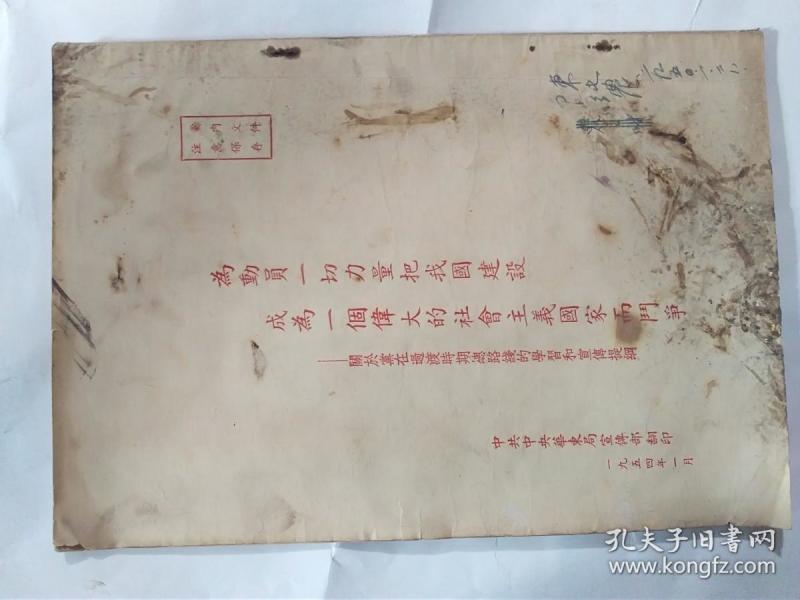 黨内文件
注意保存
為動員一切力量把我國建設
成為一個偉大的社會主義國家而鬥爭
——關於黨在過渡時期總路綫的學習和宣傳提綱
中共中央華東局宣傳部翻印
一九五四年一月
孔夫子旧书网
www.kongfz.com